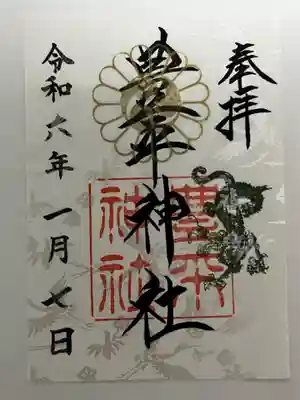 奉拝
豊平神社
豊平
神社
令和六年 一月 七日